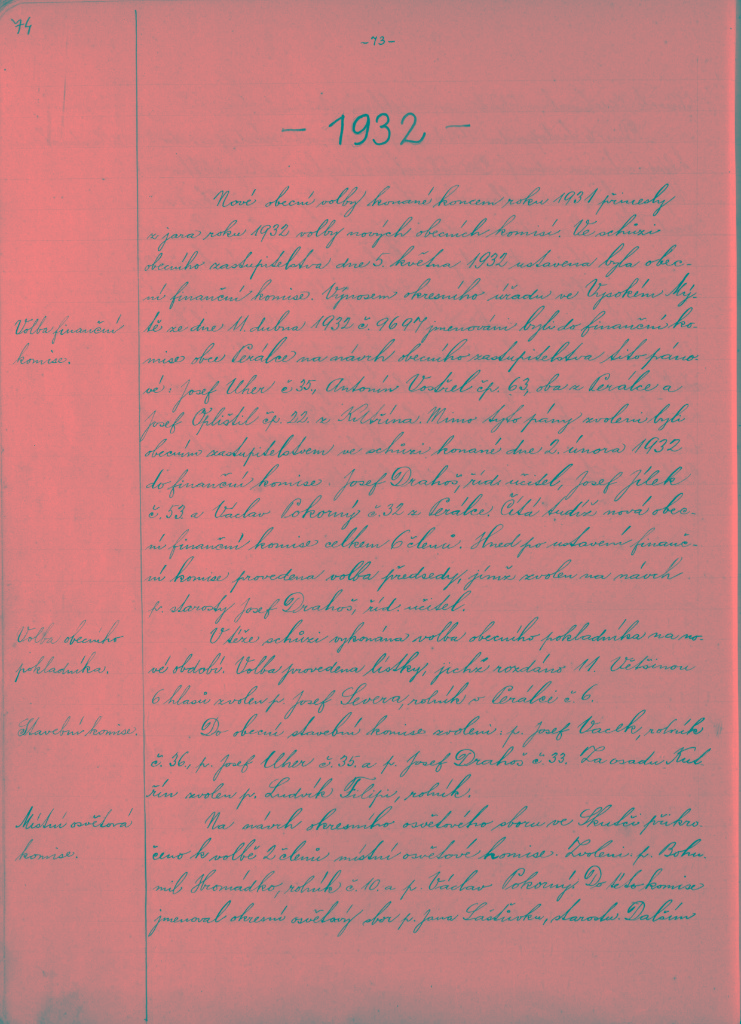 74
-73-
- 1932 -
Nové obecní volby konané koncem roku 1931 přinesly
z jara roku 1932 volby nových obecních komisí. Ve schůzi
obecního zastupitelstva dne 5. května 1932 ustavena byla obec-
ní finanční komise. Výnosem okresního úřadu ve Vysokém Mý-
Volba finanční
tě ze dne 11. dubna 1932 č. 9697 jmenováni byli do finanční ko-
komise.
mise obce Perálce na návrh obecního zastupitelstva tito páno-
vé: Josef Uher č. 35., Antonín Vostřel čp. 63, oba z Perálce a
Josef Oplištil čp. 22. z Kutřína. Mimo tyto pány zvoleni byli
obecním zastupitelstvem ve schůzi konané dne 2. února 1932
do finanční komise: Josef Drahoš, říd. učitel, Josef Jílek
č. 53. a Václav Pokorný č. 32 z Perálce. Čítá tudíž nová obec-
ní finanční komise celkem 6 členů. Hned po ustavení finanč-
ní komise provedena volba předsedy, jímž zvolen na návrh
p. starosty Josef Drahoš, říd. učitel.
Volba obecního
V téže schůzi vykonána volba obecního pokladníka na no-
pokladníka.
vé období. Volba provedena lístky, jichž rozdáno 11. Většinou
6 hlasů zvolen p. Josef Severa, rolník v Perálci č. 6.
Stavební komise.
Do obecní stavební komise zvoleni: p. Josef Vacek, rolník
č. 36., p. Josef Uher č. 35. a p. Josef Drahoš č. 33. Za osadu Kut-
řín zvolen p. Ludvík Filipi, rolník.
Místní osvětová
Na návrh okresního osvětového sboru ve Skutči přikro-
komise.
čeno k volbě 2 členů místní osvětové komise. Zvoleni: p. Bohu-
mil Hromádko, rolník č. 10. a p. Václav Pokorný. Do této komise
jmenoval okresní osvětový sbor p. Jana Laštůvku, starostu. Dalším